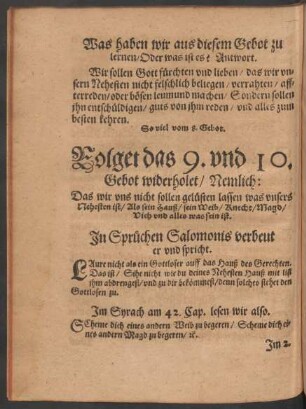 Was haben wir aus diesem Gebot zu
lernen/ Oder was ist es? Antwort.
Wir sollen Gott fürchten vnd lieben/ das wir vn-
sern Nehesten nicht felschlich beliegen/ verrahten/ aff-
terreden/ oder bösen leumund machen/ Sondern sollen
ihn entschüldigen/ guts von ihm reden/ vnd alles zum
besten kehren.
So viel vom 8. Gebot.
Folget das 9. vnd 10.
Gebot widerholet/ Nemlich:
Das wir vns nicht sollen gelüsten lassen was vnsers
Nehesten ist/ Als sein Hauß/ sein Weib/ Knecht/ Magd/
Vieh vnd alles was sein ist.
In Sprüchen Salomonis verbeut
er vnd spricht.
LAure nicht als ein Gottloser auff das Hauß des Gerechten.
Das ist/ Sihe nicht wie du deines Nehesten Hauß mit list
ihm abdrengest/ vnd zu dir bekömmest/ denn solches stehet den
Gottlosen zu.
Im Syrach am 42. Cap. lesen wir also.
SCheme dich eines andern Weib zu begeren/ Scheme dich ei-
nes andern Magd zu begeren/ ꝛc.
Im 2.